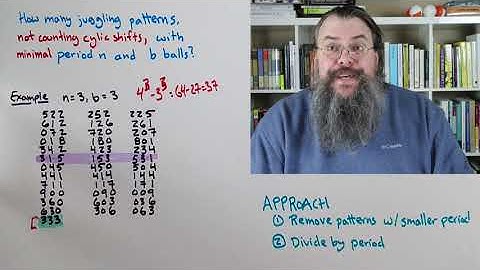 How many juggling patterns,
not counting cylic shifts, with
minimal period n and b balls?
Example n=3, b=3 4³-3³=64-27=37
522 252 225
612 126 261
072 720 207
018 180 801
342 423 234
315 153 531
045 450 504
144 414 441
711 117 171
900 090 009
360 603 036
630 306 063
333
APPROACH
① Remove patterns w/smaller period
② Divide by period
Columbia